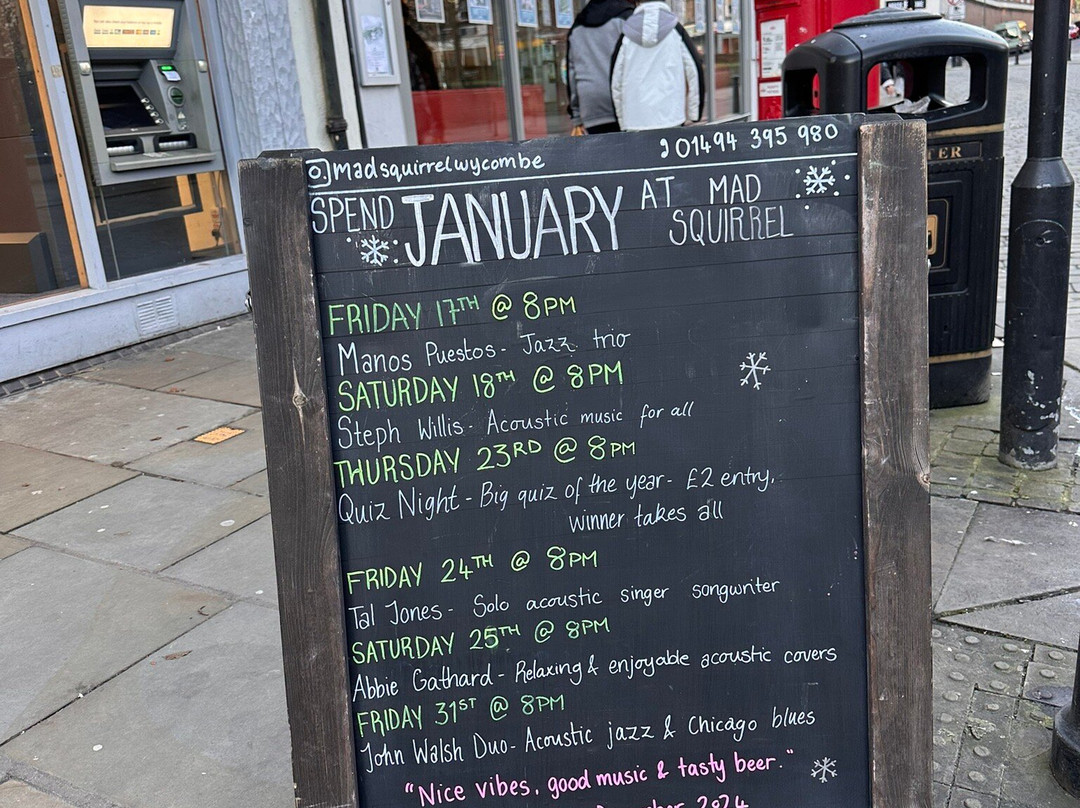 @madsquirrelwycombe
01494 395 980
SPEND JANUARY AT MAD SQUIRREL
FRIDAY 17TH @ 8PM
Manos Puestos - Jazz trio
SATURDAY 18TH @ 8PM
Steph Willis - Acoustic music for all
THURSDAY 23RD @ 8PM
Quiz Night - Big quiz of the year - £2 entry,
winner takes all
FRIDAY 24TH @ 8PM
Tal Jones - Solo acoustic singer songwriter
SATURDAY 25TH @ 8PM
Abbie Gathard - Relaxing & enjoyable acoustic covers
FRIDAY 31ST @ 8PM
John Walsh Duo - Acoustic jazz & Chicago blues
"Nice vibes, good music & tasty beer."
2024
TER